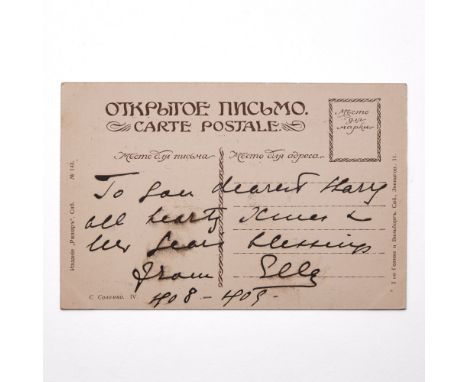 ОТКРЫТОЕ ПИСЬМО.
CARTE POSTALE.
Мѣсто
для
марки
Мѣсто для письма
Мѣсто для адреса.
To you dearest Harry
all hearty Xmas &
New Years blessings
from Ella
1908 - 1909.
С. Соломко. IV.
Изданіе „Ришаръ“ Спб. № 143.